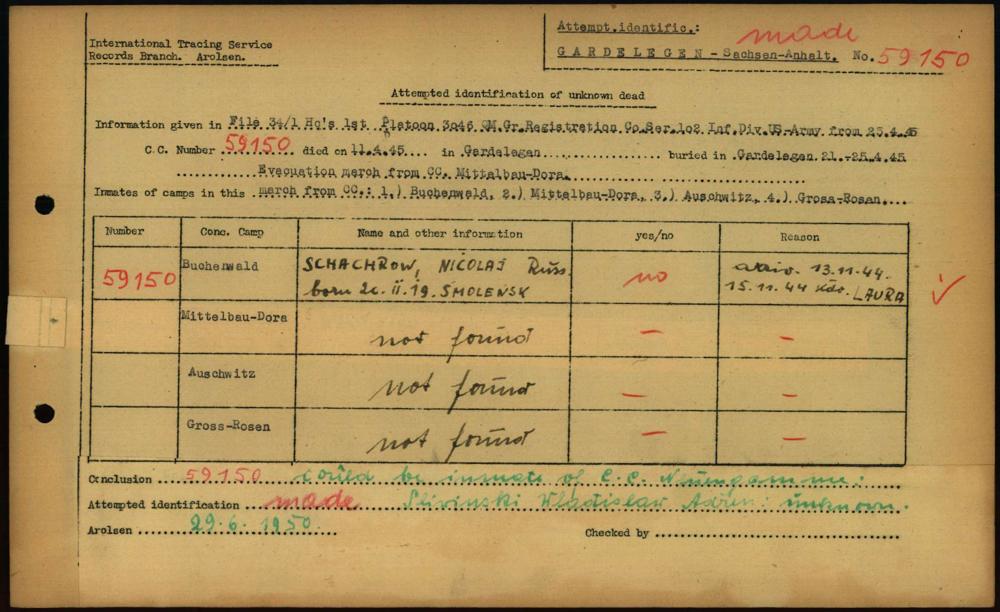 International Tracing Service
Records Branch. Arolsen.
Attempt.identific.: made
GARDELEGEN - Sachsen-Anhalt. No. 59150
Attempted identification of unknown dead
Information given in File 34/1 Hq's 1st Platoon 3046 QM.Gr.Registration Co.Ser.102 Inf.Div.US-Army from 25.4.45
C.C. Number 59150 died on 11.4.45 in Gardelegen buried in Gardelegen 21.-25.4.45
Evacuation march from CC. Mittelbau-Dora.
Inmates of camps in this march from CC.: 1.) Buchenwald, 2.) Mittelbau-Dora, 3.) Auschwitz, 4.) Gross-Rosen.
Number Conc. Camp Name and other information yes/no Reason
59150 Buchenwald SCHACHROW, NICOLAJ Russ no arriv. 13.11.44.
born 20.II.19. SMOLENSK 15.11.44 Kdo. LAURA
Mittelbau-Dora not found — —
Auschwitz not found — —
Gross-Rosen not found — —
Conclusion 59150 could be inmate of C.C. Neuengamme:
Attempted identification made Slivinski Wladislaw Adren: unknown.
Arolsen 29.6.1950.
Checked by